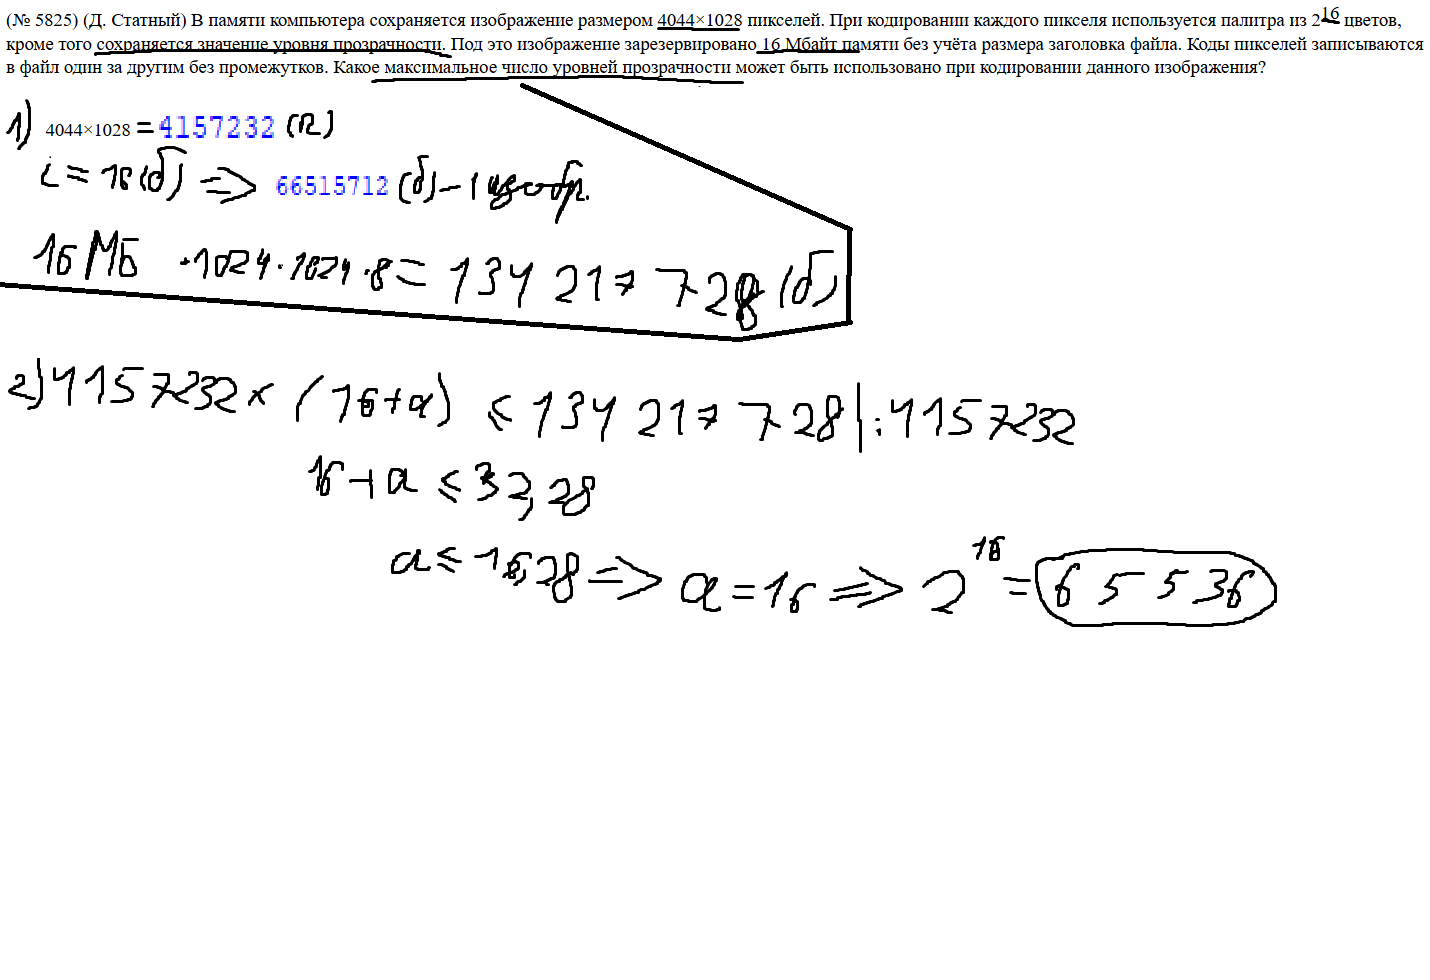 (№ 5825) (Д. Статный) В памяти компьютера сохраняется изображение размером 4044×1028 пикселей. При кодировании каждого пикселя используется палитра из 2^16 цветов,
кроме того сохраняется значение уровня прозрачности. Под это изображение зарезервировано 16 Мбайт памяти без учёта размера заголовка файла. Коды пикселей записываются
в файл один за другим без промежутков. Какое максимальное число уровней прозрачности может быть использовано при кодировании данного изображения?
1) 4044×1028 = 4157232 (П)
i = 16 (б) => 66515712 (б) – 1 изобр.
16 МБ ·1024·1024·8 = 134 217 728 (б)
2) 4157232 × (16+a) ≤ 134 217 728 | : 4157232
16 + a ≤ 32,28
a ≤ 16,28 => a = 16 => 2^16 = 65536